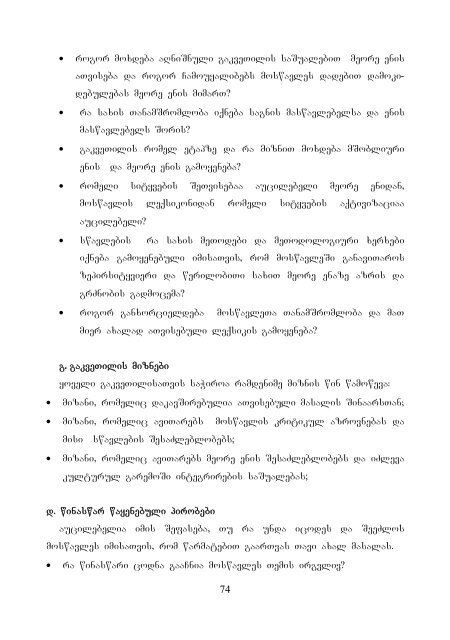 • როგორ მოხდება აღნიშნული გაკვეთილის საშუალებით მეორე ენის
ათვისება და როგორ ჩამოუყალიბებს მოსწავლეს დადებით დამოკი-
დებულებას მეორე ენის მიმართ?
• რა სახის თანამშრომლობა იქნება საგნის მასწავლებელსა და ენის
მასწავლებელს შორის?
• გაკვეთილის რომელ ეტაპზე და რა მიზნით მოხდება მშობლიური
ენის და მეორე ენის გამოყენება?
• რომელი სიტყვების შეთვისებაა აუცილებელი მეორე ენიდან,
მოსწავლის ლექსიკონიდან რომელი სიტყვების აქტივიზაციაა
აუცილებელი?
• სწავლების რა სახის მეთოდები და მეთოდოლოგიური ხერხები
იქნება გამოყენებული იმისათვის, რომ მოსწავლეში განავითაროს
ზეპირსიტყვიერი და წერილობითი სახით მეორე ენაზე აზრის და
გრძნობის გადმოცემა?
• როგორ განხორციელდება მოსწავლეთა თანამშრომლობა და მათ
მიერ ახალად ათვისებული ლექსიკის გამოყენება?
გ. გაკვეთილის მიზნები
ყოველი გაკვეთილისათვის საჭიროა რამდენიმე მიზნის წინ წამოწევა:
• მიზანი, რომელიც დაკავშირებულია ათვისებული მასალის შინაარსთან;
• მიზანი, რომელიც ავითარებს მოსწავლის კრიტიკულ აზროვნებას და
მისი სწავლების შესაძლებლობებს;
• მიზანი, რომელიც ავითარებს მეორე ენის შესაძლებლობებს და იძლევა
კულტურულ გარემოში ინტეგრირების საშუალებას;
დ. წინასწარ წაყენებული პირობები
აუცილებელია იმის შეფასება, თუ რა უნდა იცოდეს და შეეძლოს
მოსწავლეს იმისათვის, რომ წარმატებით გაართვას თავი ახალ მასალას.
• რა წინასწარი ცოდნა გააჩნია მოსწავლეს თემის ირგვლივ?
74